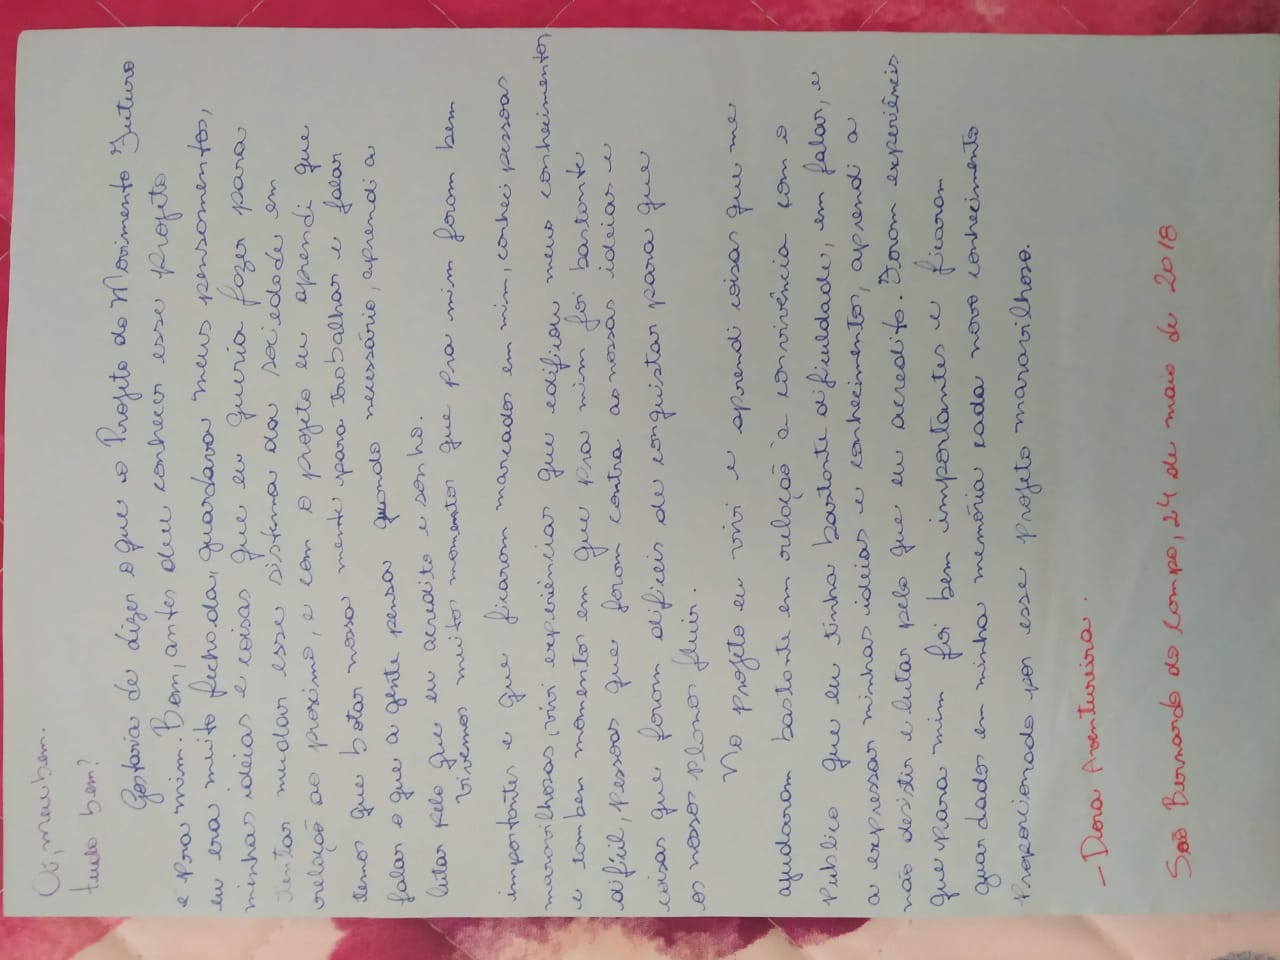 Oi, meu bem.
tudo bem?
Gostaria de dizer o que o Projeto do Movimento Futuro
é pra mim. Bem, antes deu conhecer esse projeto
eu era muito fechada, guardava meus pensamentos,
minhas ideias e coisas que eu queria fazer para
tentar mudar esse sistema da sociedade em
relação ao próximo, e com o projeto eu aprendi que
temos que botar nossa mente para trabalhar e falar
falar o que a gente pensa quando necessário, aprendi a
lutar pelo que eu acredito e sonho.
Vivemos muitos momentos que pra mim foram bem
importantes e que ficaram marcados em mim, conheci pessoas
maravilhosas, vivi experiências que edificou meu conhecimentos,
e tambem momentos em que pra mim foi bastante
dificil, pessoas que foram contra as nossas ideias e
coisas que foram dificeis de conquistar para que
os nossos planos fluir.
No projeto eu vivi e aprendi coisas que me
ajudaram bastante em relação à convivência com o
publico que eu tinha bastante dificuldade, em falar, e
a expressar minhas ideias e conhecimentos, aprendi a
não desistir e lutar pelo que eu acredito. Foram experiências
que para mim foi bem importantes e ficaram
guardados em minha memória cada novo conhecimento
proporcionado por esse projeto maravilhoso.
- Dora Aventureira.
São Bernardo do campo, 24 de maio de 2018